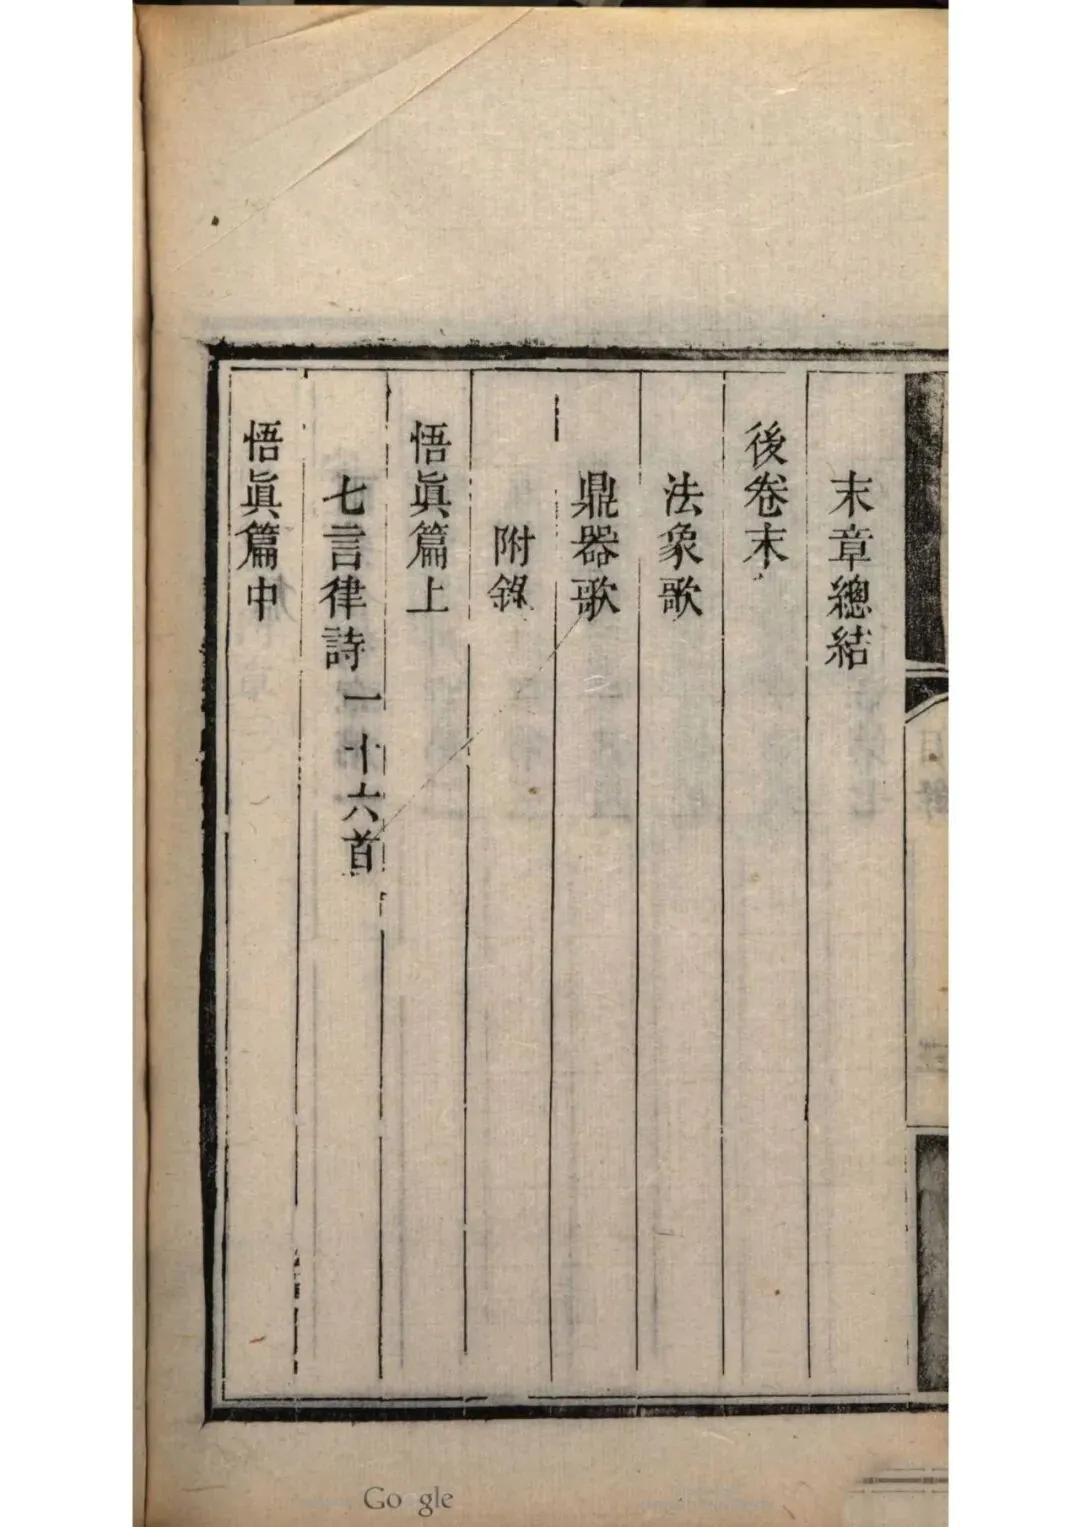 末章總結
後卷末
法象歌
鼎器歌
附錄
悟眞篇上
七言律詩一十六首
悟眞篇中
Google